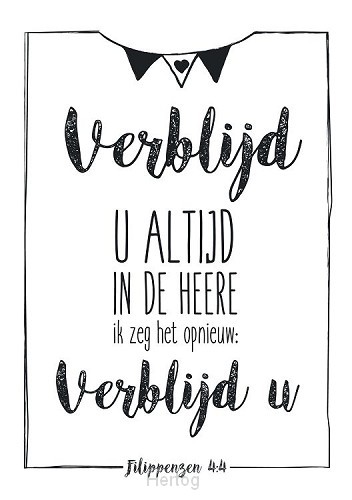 Verblijd
U ALTIJD
IN DE HEERE
ik zeg het opnieuw:
Verblijd u
Filippenzen 4:4
Hertog